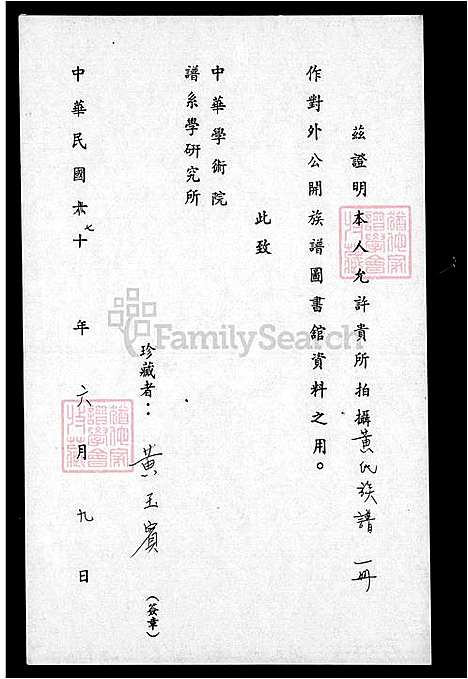 茲證明本人允許貴所拍攝黃氏族譜一冊
作對外公開族譜圖書館資料之用。
此致
中華學術院
譜系學研究所
珍藏者：黃玉賓（簽章）
中華民國七十年六月九日
FamilySearch